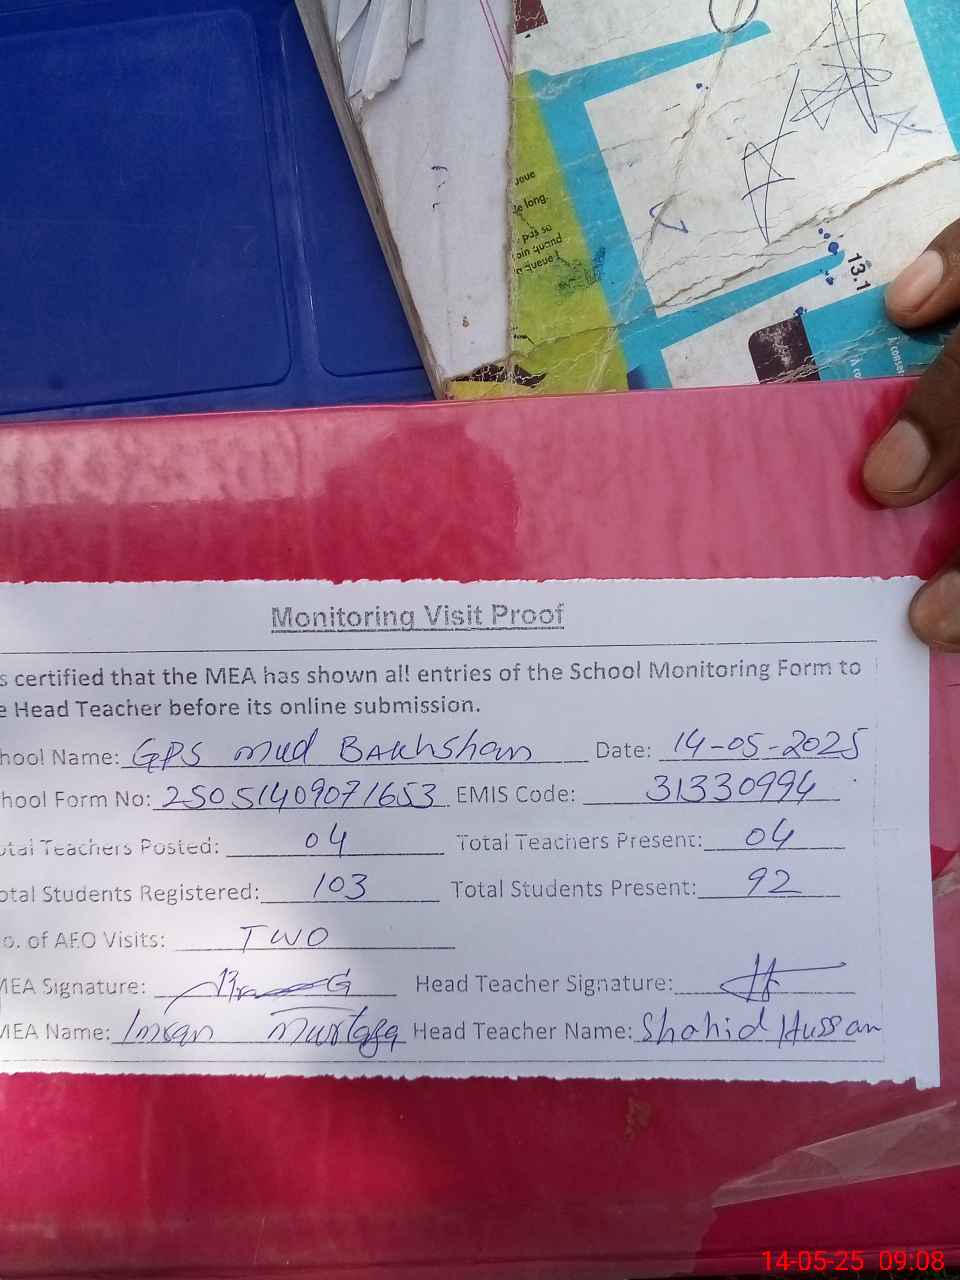 joue
le long.
pas so
oin quand
queue !
13.1
À conser
À co
Monitoring Visit Proof
s certified that the MEA has shown all entries of the School Monitoring Form to
e Head Teacher before its online submission.
hool Name: GPS mud BAKhshan Date: 14-05-2025
hool Form No: 25051409071653 EMIS Code: 31330994
otal Teachers Posted: 04 Total Teachers Present: 04
otal Students Registered: 103 Total Students Present: 92
o. of AEO Visits: TWO
MEA Signature: Head Teacher Signature:
MEA Name: Imran Murtaza Head Teacher Name: Shahid Hussan
14-05-25 09:08